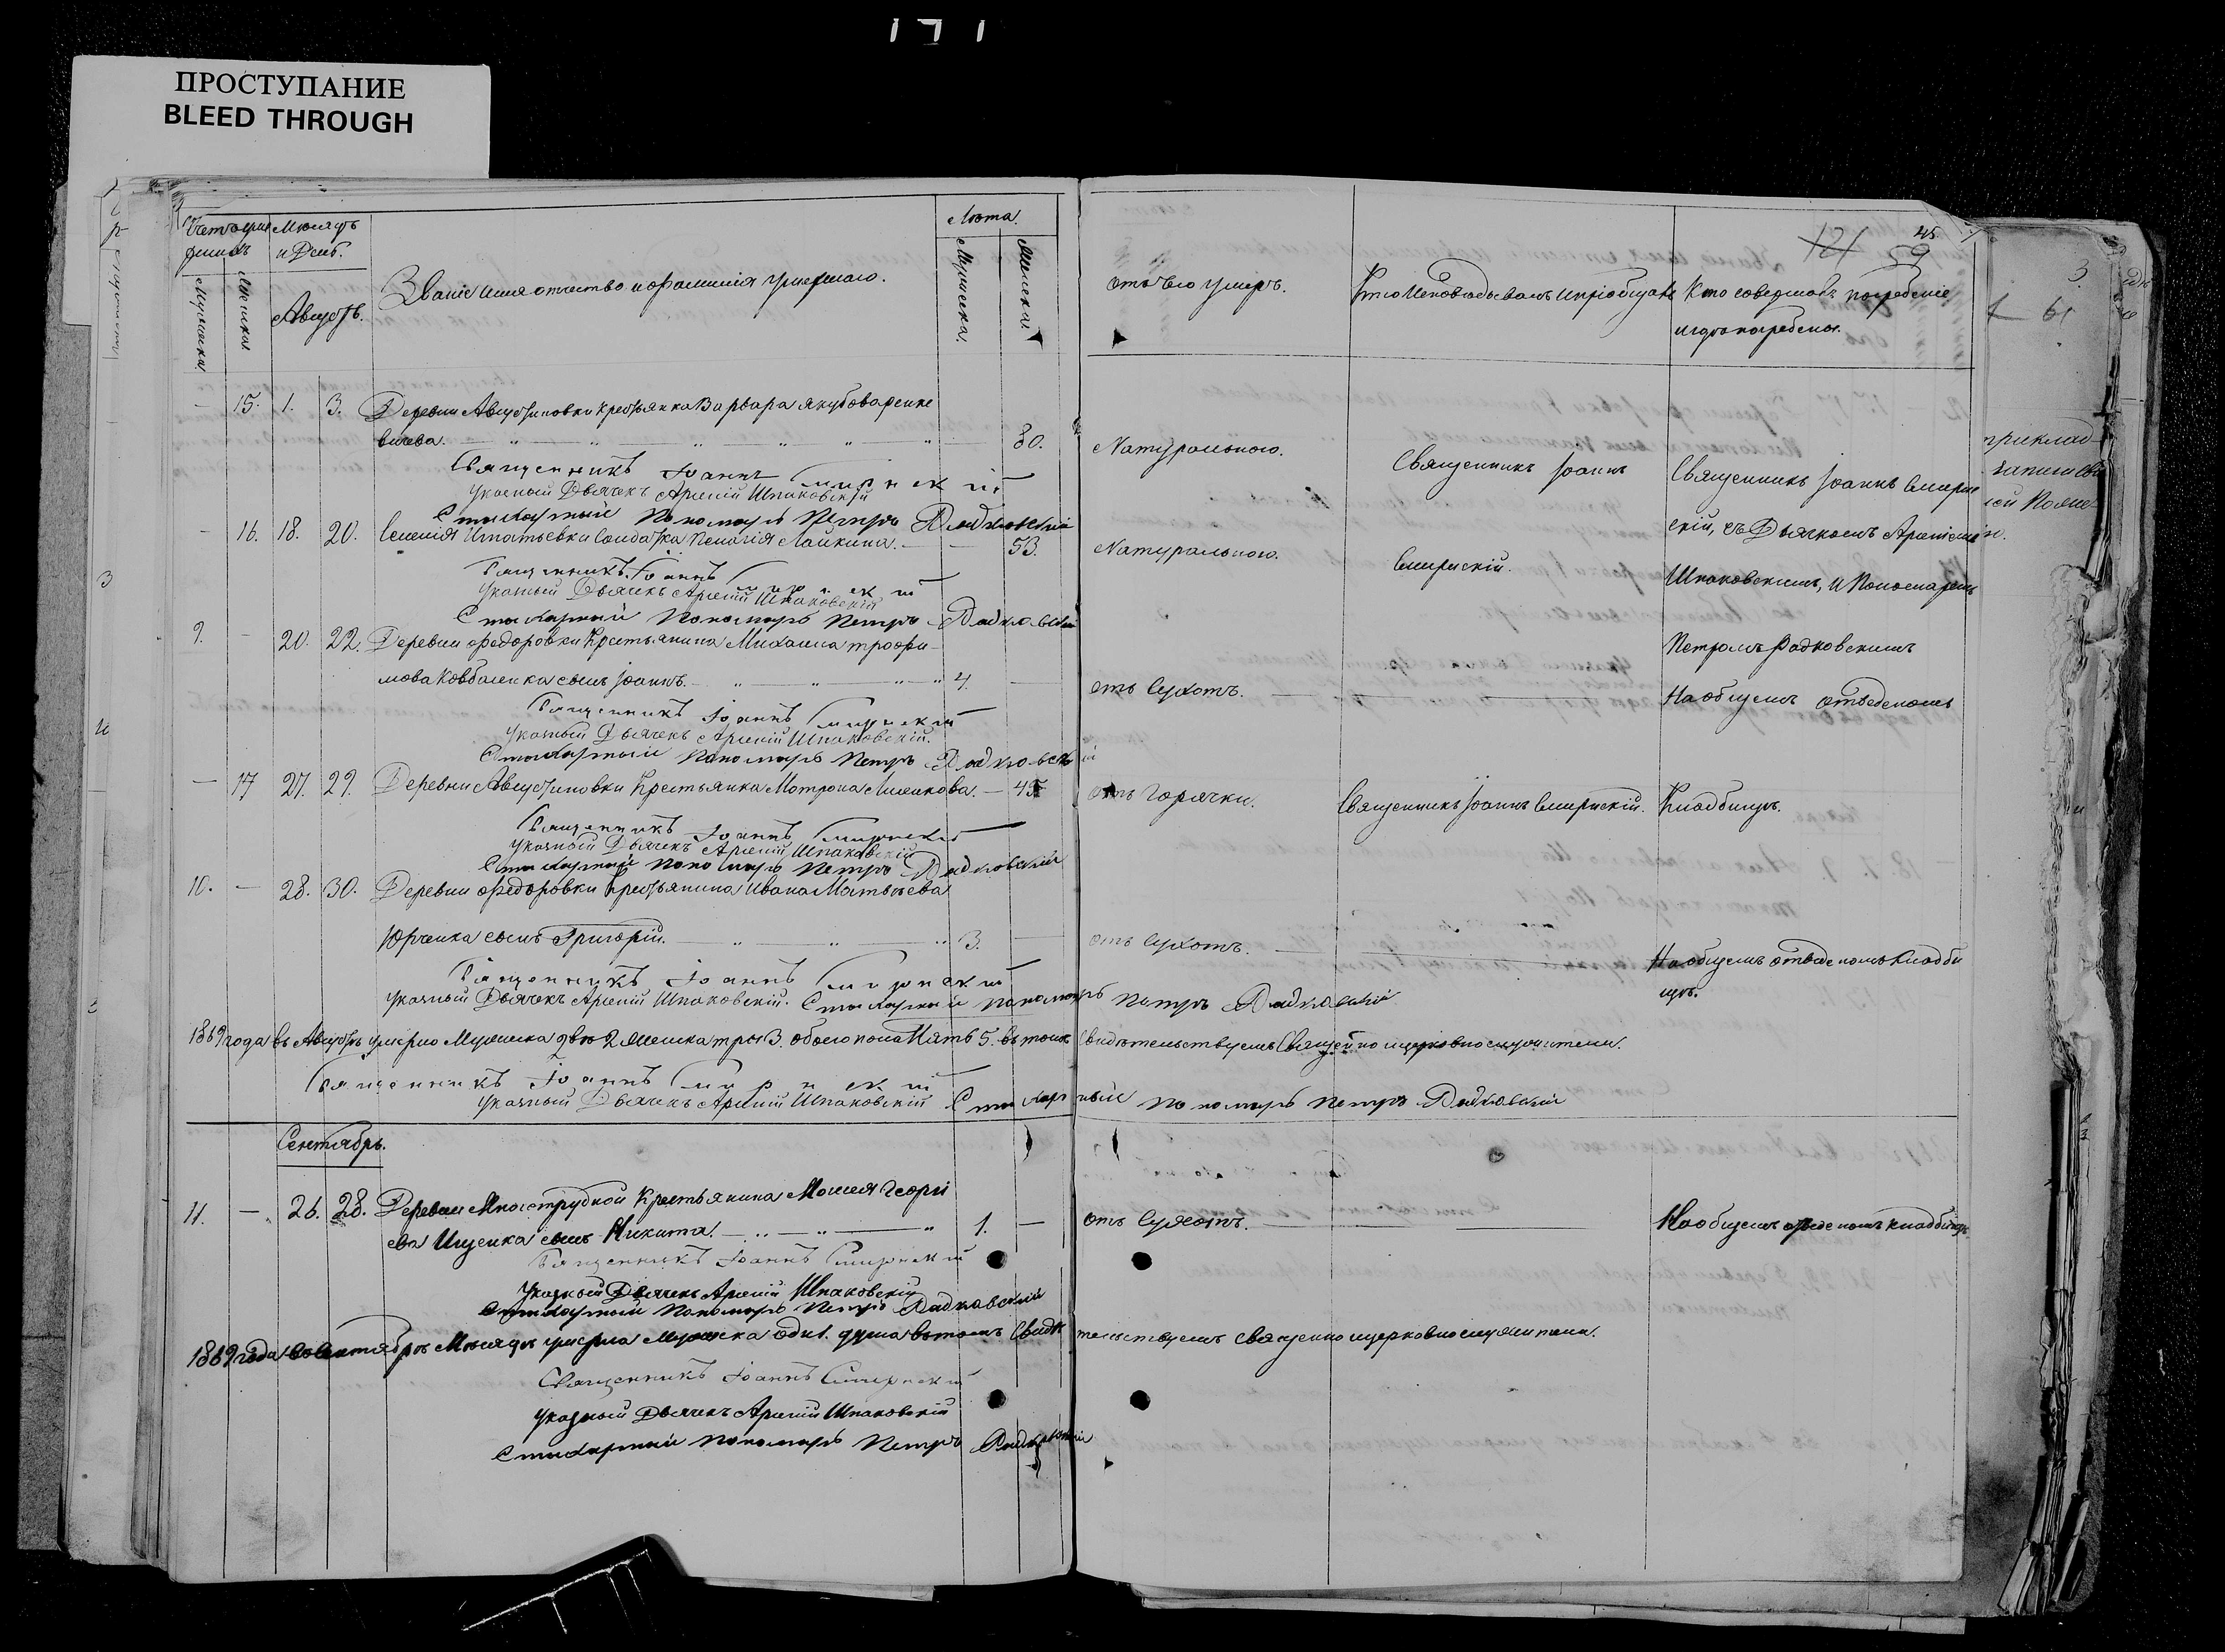 ПРОСТУПАНИЕ
BLEED THROUGH
Счетъ умер
шихъ
Мужеска
Женска
Мѣсяцъ
и День.
Августъ.
Званіе имя отчество и фамилія умершаго.
Лѣта.
Мужеска.
Женска.
отъ чего умеръ.
Кто исповѣдывалъ и пріобщалъ
Кто совершалъ погребеніе
и гдѣ погребены.
121 59
45.
- 15. 1. 3. Деревни Августиновки крестьянка Варвара Якубова
вичева. 80. Натурального.
Священникъ Іоаннъ
Священникъ Іоаннъ
Священникъ Іоаннъ Смирнскій
Указный Дьячекъ Арсеній Шпаковскій
Стихарный Пономарь Петръ Радковскій
- 16. 18. 20. Селенія Игнатьевки Солдатка Пелагія Лайкина. 53. Натурального.
Смирнскій.
скій, съ Дьячкомъ Арсеніемъ
Шпаковскимъ, и Пономаремъ
Священникъ Іоаннъ Смирнскій
Указный Дьячекъ Арсеній Шпаковскій
Стихарный Пономарь Петръ Радковскій
9. - 20. 22. Деревни Федоровки Крестьянина Михаила Трофи
мова Ковбасенка сынъ Іоаннъ. 4. - отъ Сухотъ.
Петромъ Радковскимъ
На общемъ отведеномъ
Священникъ Іоаннъ Смирнскій
Указный Дьячекъ Арсеній Шпаковскій.
Стихарный Пономарь Петръ Радковскій
- 17 27. 29. Деревни Августиновки Крестьянка Мотрона Лисенкова. - 45 отъ Горячки. Священникъ Іоаннъ Смирнскій. Кладбищѣ.
Священникъ Іоаннъ Смирнскій
Указный Дьячекъ Арсеній Шпаковскій
Стихарный Пономарь Петръ Радковскій
10. - 28. 30. Деревни Федоровки Крестьянина Ивана Матвѣева
Юрченка сынъ Григорій. 3. - отъ Сухотъ. На общемъ отведеномъ Кладби
щѣ.
Священникъ Іоаннъ Смирнскій
Указный Дьячекъ Арсеній Шпаковскій. Стихарный Пономарь Петръ Радковскій
1869 года въ Августѣ умерло Мужеска двѣ 2 женска три 3. обоего пола Пять 5. въ томъ Свидѣтельствуемъ Священно и церковно служители.
Священникъ Іоаннъ Смирнскій
Указный Дьячекъ Арсеній Шпаковскій Стихарный Пономарь Петръ Радковскій
Сентябрь.
11. - 26. 28. Деревни Крестьянина Моисея Георгі
ева Ищенка сынъ Никита. 1. - отъ Сухотъ. На общемъ отведеномъ кладбищѣ
Священникъ Іоаннъ Смирнскій
Указный Дьячекъ Арсеній Шпаковскій
Стихарный Пономарь Петръ Радковскій
1869 года въ Сентябрѣ Мѣсяцѣ умерла Мужеска одна 1. душа въ томъ Свидѣтельствуемъ Священно и церковно служители.
Священникъ Іоаннъ Смирнскій
Указный Дьячекъ Арсеній Шпаковскій
Стихарный Пономарь Петръ Радковскій